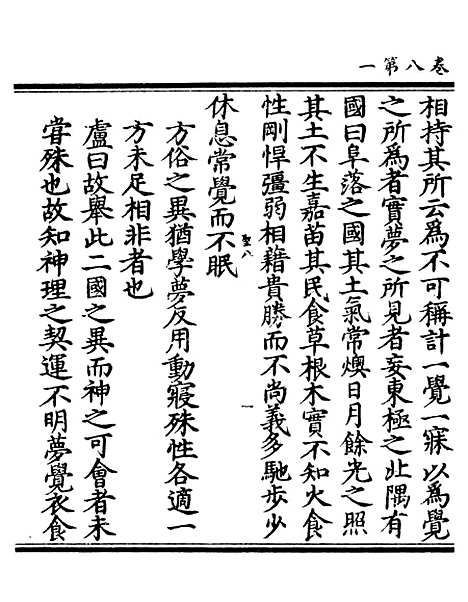 卷八第一
相持其所云爲不可稱計一覺一寐以爲覺
之所爲者實夢之所見者妄東極之北隅有
國曰阜落之國其土氣常燠日月餘光之照
其土不生嘉苗其民食草根木實不知火食
性剛悍彊弱相藉貴勝而不尚義多馳步少
休息常覺而不眠
聖八
一
方俗之異猶學夢反用動寢殊性各適一
方未足相非者也
盧曰故舉此二國之異而神之可會者未
甞殊也故知神理之契運不明夢覺衣食